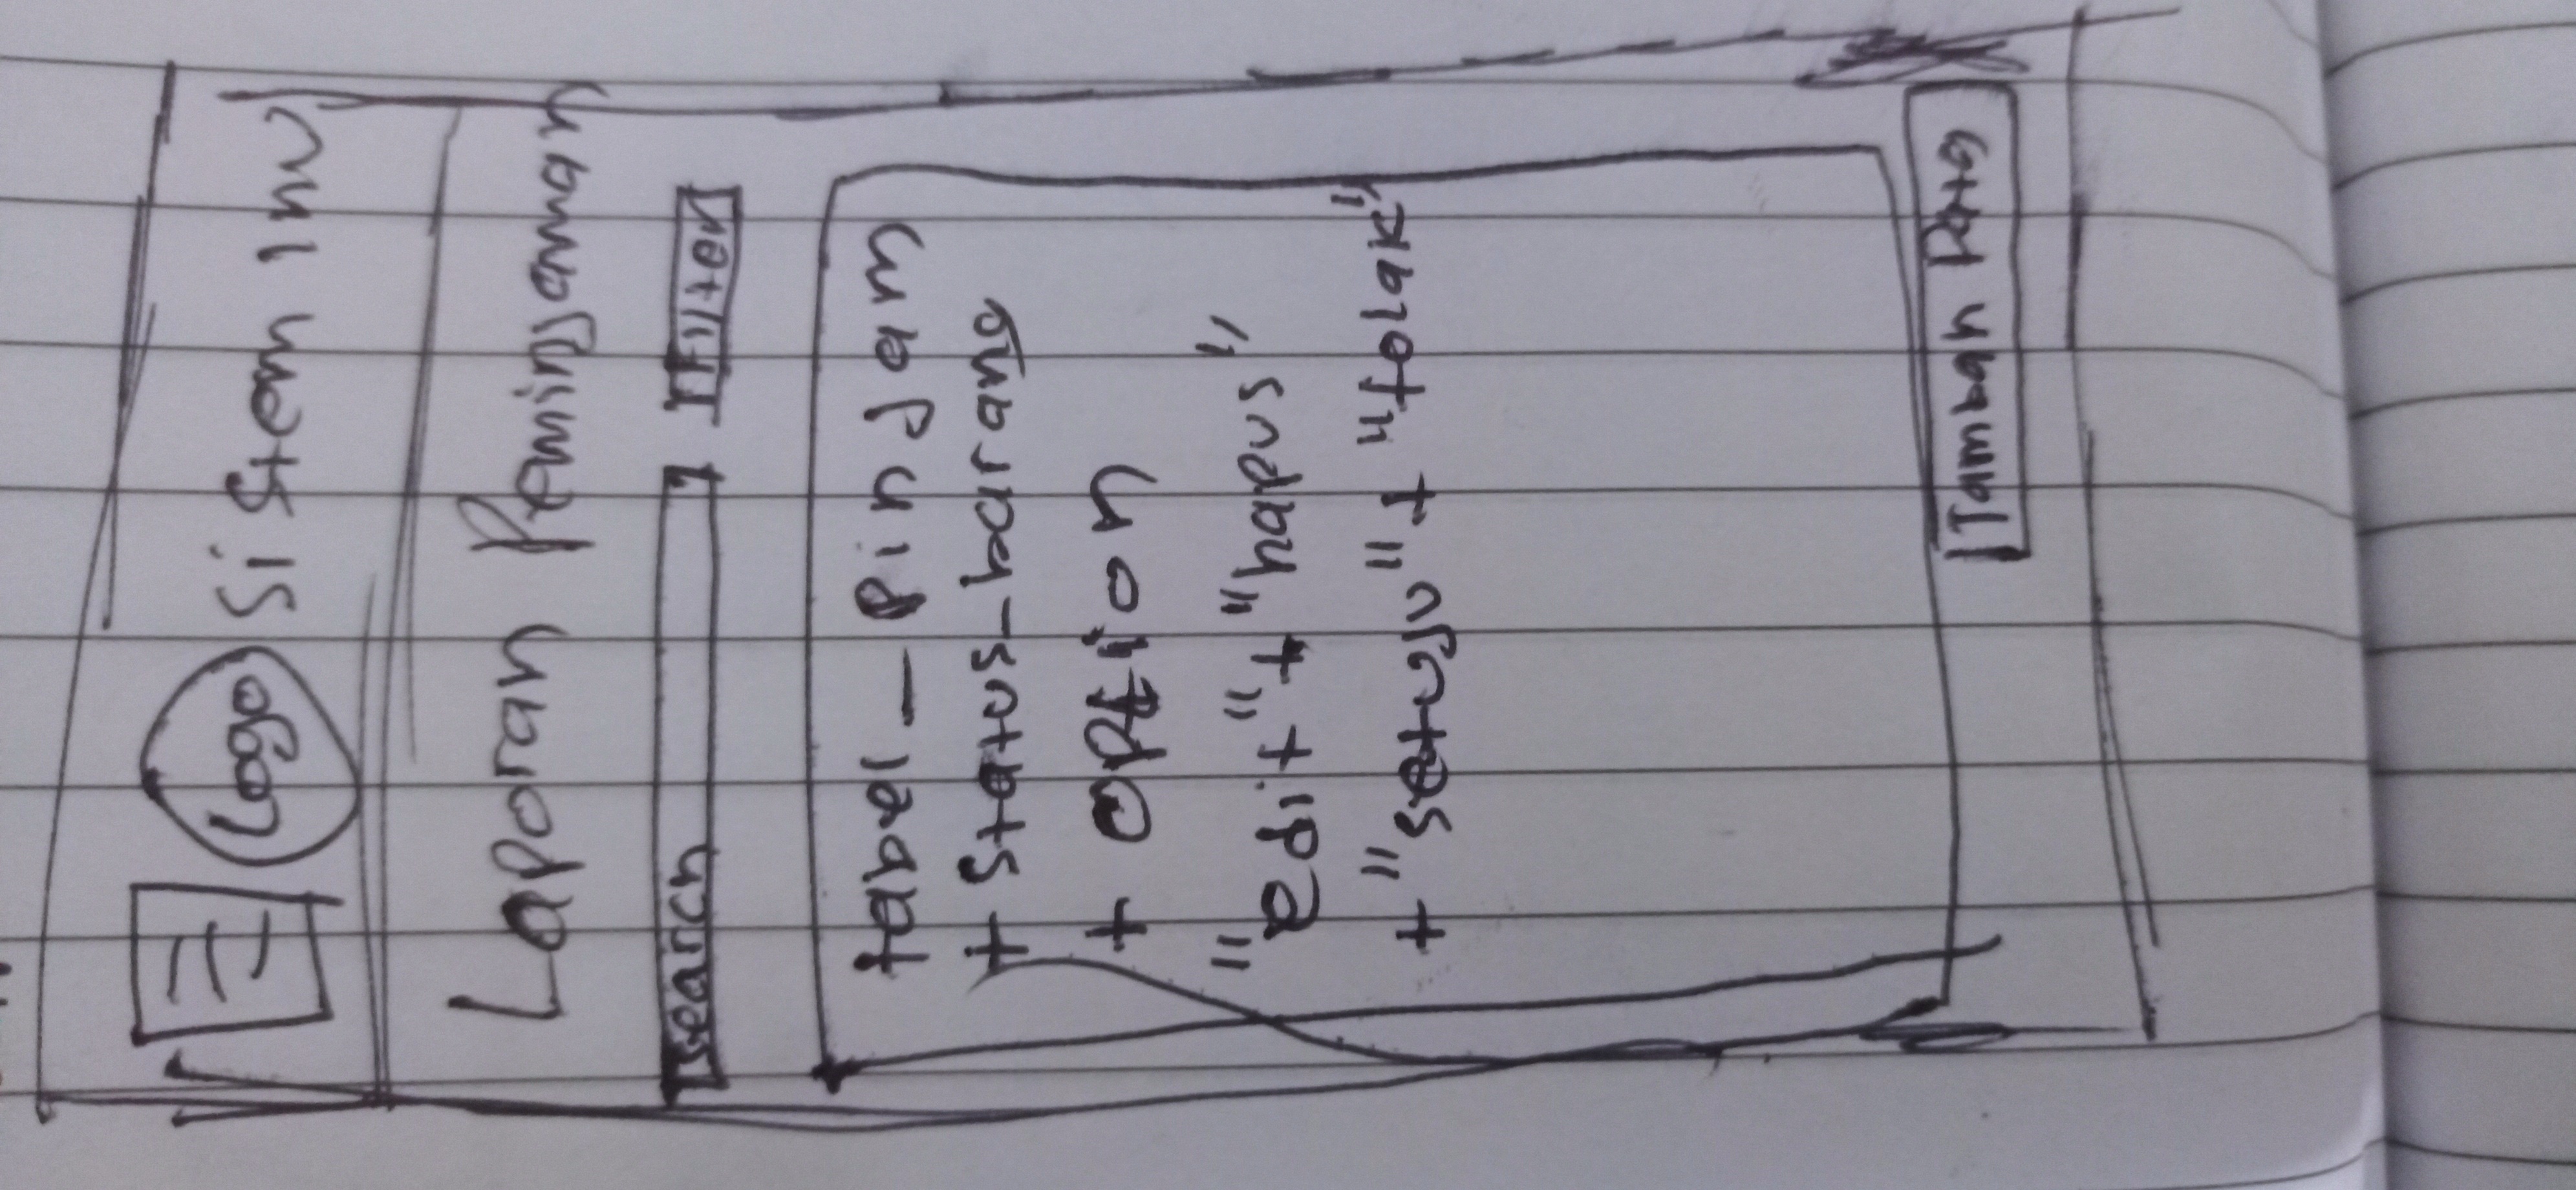 Logo Sistem inv
Laporan Peminjaman
search Filter
tabel - pinjam
+ status-barang
+ option
"edit" + "hapus"
+ "setuju" + "tolak"
Tambah Data